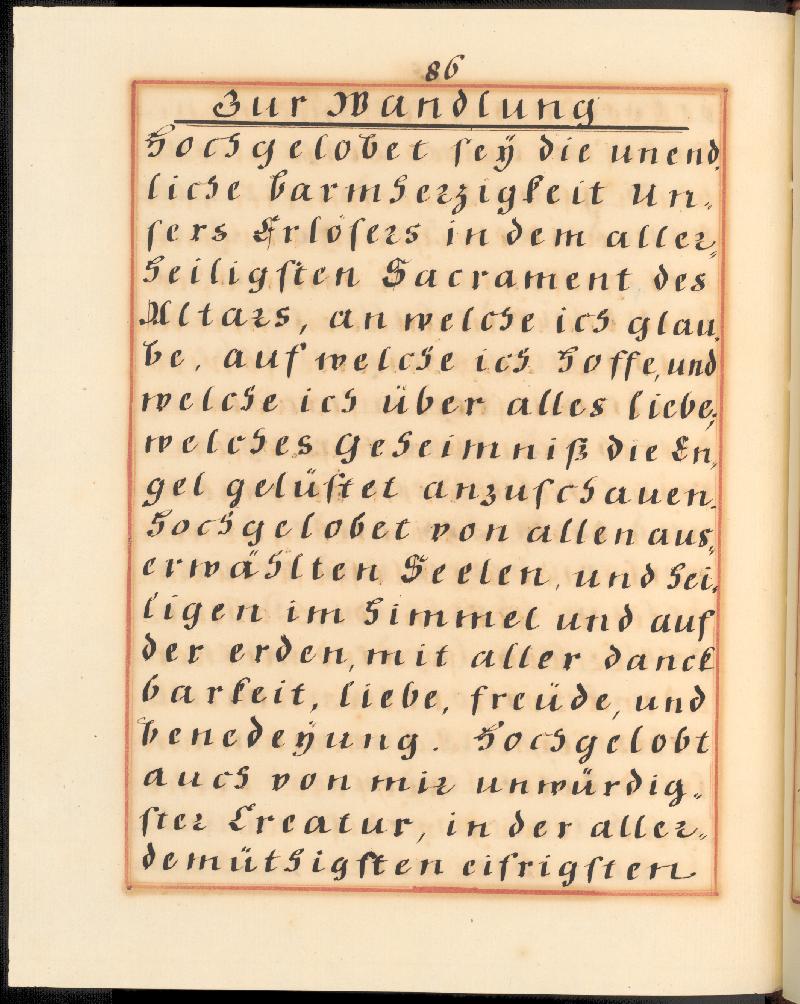 86
Zur Wandlung
Hochgelobet seÿ die unend„
liche barmherzigkeit un„
sers Erlösers in dem aller„
heiligsten Sacrament des
Altars, an welche ich glau„
be, auf welche ich hoffe, und
welche ich über alles liebe;
welches Geheimniß die En„
gel gelüstet anzuschauen.
Hochgelobet von allen aus„
erwählten Seelen, und hei„
ligen im himmel und auf
der erden, mit aller danck
barkeit, liebe, freüde, und
benedeÿung. Hochgelobt
auch von mir unwürdig„
ster Creatur, in der aller„
demüthigsten eifrigsten